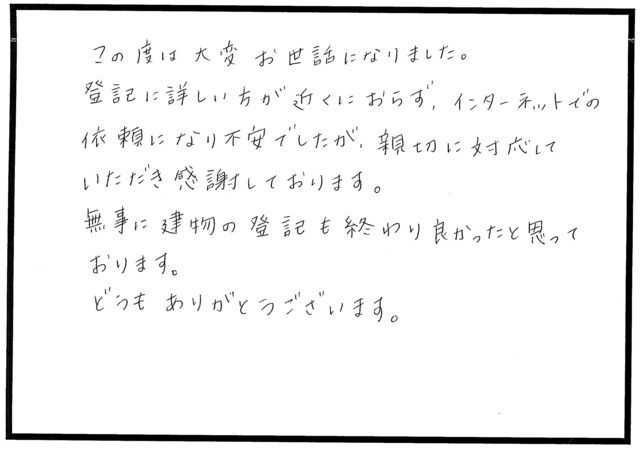 この度は大変お世話になりました。
登記に詳しい方が近くにおらず、インターネットでの
依頼になり不安でしたが、親切に対応して
いただき感謝しております。
無事に建物の登記も終わり良かったと思って
おります。
どうもありがとうございます。